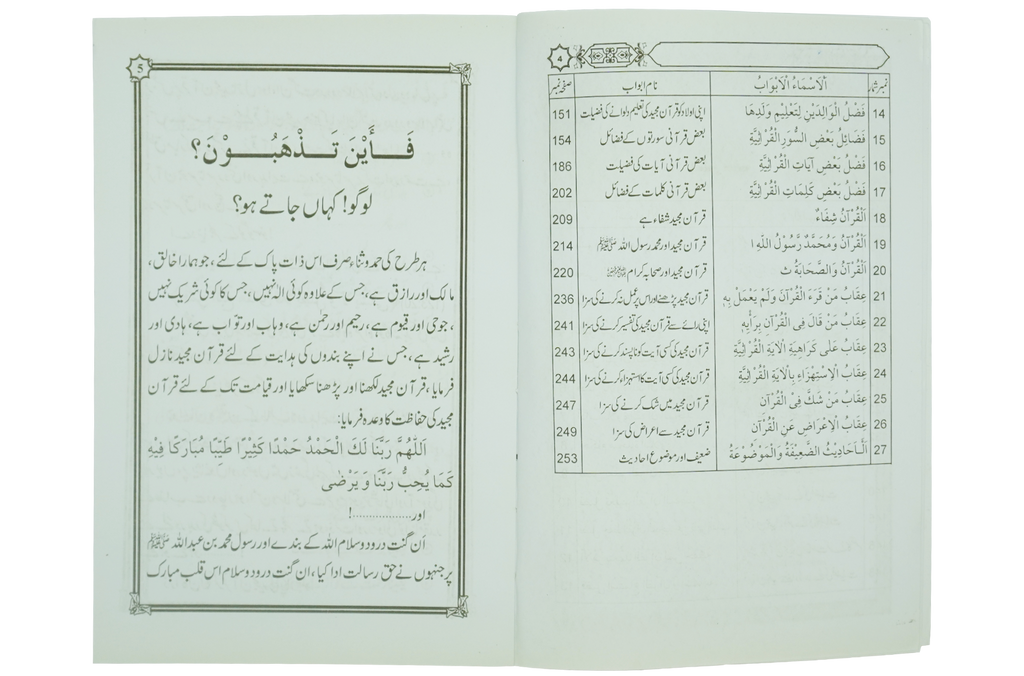 4
نمبر شمار اَلْاَسْمَاءُ الْاَبْوَابُ نام ابواب صفحہ نمبر
14 فَضْلُ الْوَالِدَيْنِ لِتَعْلِيْمِ وَلَدِهَا اپنی اولاد کو قرآن مجید کی تعلیم دلوانے کی فضیلت 151
15 فَضَائِلُ بَعْضِ السُّوَرِ الْقُرْآنِيَّةِ بعض قرآنی سورتوں کے فضائل 154
16 فَضْلُ بَعْضِ آيَاتِ الْقُرْآنِيَّةِ بعض قرآنی آیات کی فضیلت 186
17 فَضْلُ بَعْضِ كَلِمَاتِ الْقُرْآنِيَّةِ بعض قرآنی کلمات کے فضائل 202
18 اَلْقُرْآنُ شِفَاءٌ قرآن مجید شفاء ہے 209
19 اَلْقُرْآنُ وَمُحَمَّدٌ رَّسُوْلُ اللّٰهِ ا قرآن مجید اور محمد رسول اللہ ﷺ 214
20 اَلْقُرْآنُ وَالصَّحَابَةُ ث قرآن مجید اور صحابہ کرام 220
21 عِقَابُ مَنْ قَرَءَ الْقُرْآنَ وَلَمْ يَعْمَلْ بِهٖ قرآن مجید پڑھنے اور اس پر عمل نہ کرنے کی سزا 236
22 عِقَابُ مَنْ قَالَ فِى الْقُرْآنِ بِرَأْيِهٖ اپنی رائے سے قرآن مجید کی تفسیر کرنے کی سزا 241
23 عِقَابُ عَلٰى كَرَاهِيَةِ الْآيَةِ الْقُرْآنِيَّةِ قرآن مجید کی کسی آیت کو ناپسند کرنے کی سزا 243
24 عِقَابُ الْاِسْتِهْزَاءِ بِالْآيَةِ الْقُرْآنِيَّةِ قرآن مجید کی کسی آیت کا استہزاء کرنے کی سزا 244
25 عِقَابُ مَنْ شَكَّ فِى الْقُرْآنِ قرآن مجید میں شک کرنے کی سزا 247
26 عِقَابُ الْاِعْرَاضِ عَنِ الْقُرْآنِ قرآن مجید سے اعراض کی سزا 249
27 اَلْاَحَادِيْثُ الضَّعِيْفَةُ وَالْمَوْضُوْعَةُ ضعیف اور موضوع احادیث 253
5
فَــأَيْنَ تَــذْهَبُــوْنَ؟
لوگو! کہاں جاتے ہو؟
ہر طرح کی حمد و ثناء صرف اس ذات پاک کے لئے، جو ہمارا خالق،
مالک اور رازق ہے، جس کے علاوہ کوئی الٰہ نہیں، جس کا کوئی شریک نہیں
، جو حی اور قیوم ہے، رحیم اور رحمٰن ہے، وہاب اور تواب ہے، ہادی اور
رشید ہے، جس نے اپنے بندوں کی ہدایت کے لئے قرآن مجید نازل
فرمایا، قرآن مجید لکھنا اور پڑھنا سکھایا اور قیامت تک کے لئے قرآن
مجید کی حفاظت کا وعدہ فرمایا:
اَللّٰهُمَّ رَبَّنَا لَكَ الْحَمْدُ حَمْدًا كَثِيْرًا طَيِّبًا مُبَارَكًا فِيْهِ
كَمَا يُحِبُّ رَبُّنَا وَ يَرْضٰى
اور.................!
اَن گنت درود و سلام اللہ کے بندے اور رسول محمد بن عبداللہ ﷺ
پر جنہوں نے حق رسالت ادا کیا، ان گنت درود و سلام اس قلب مبارک